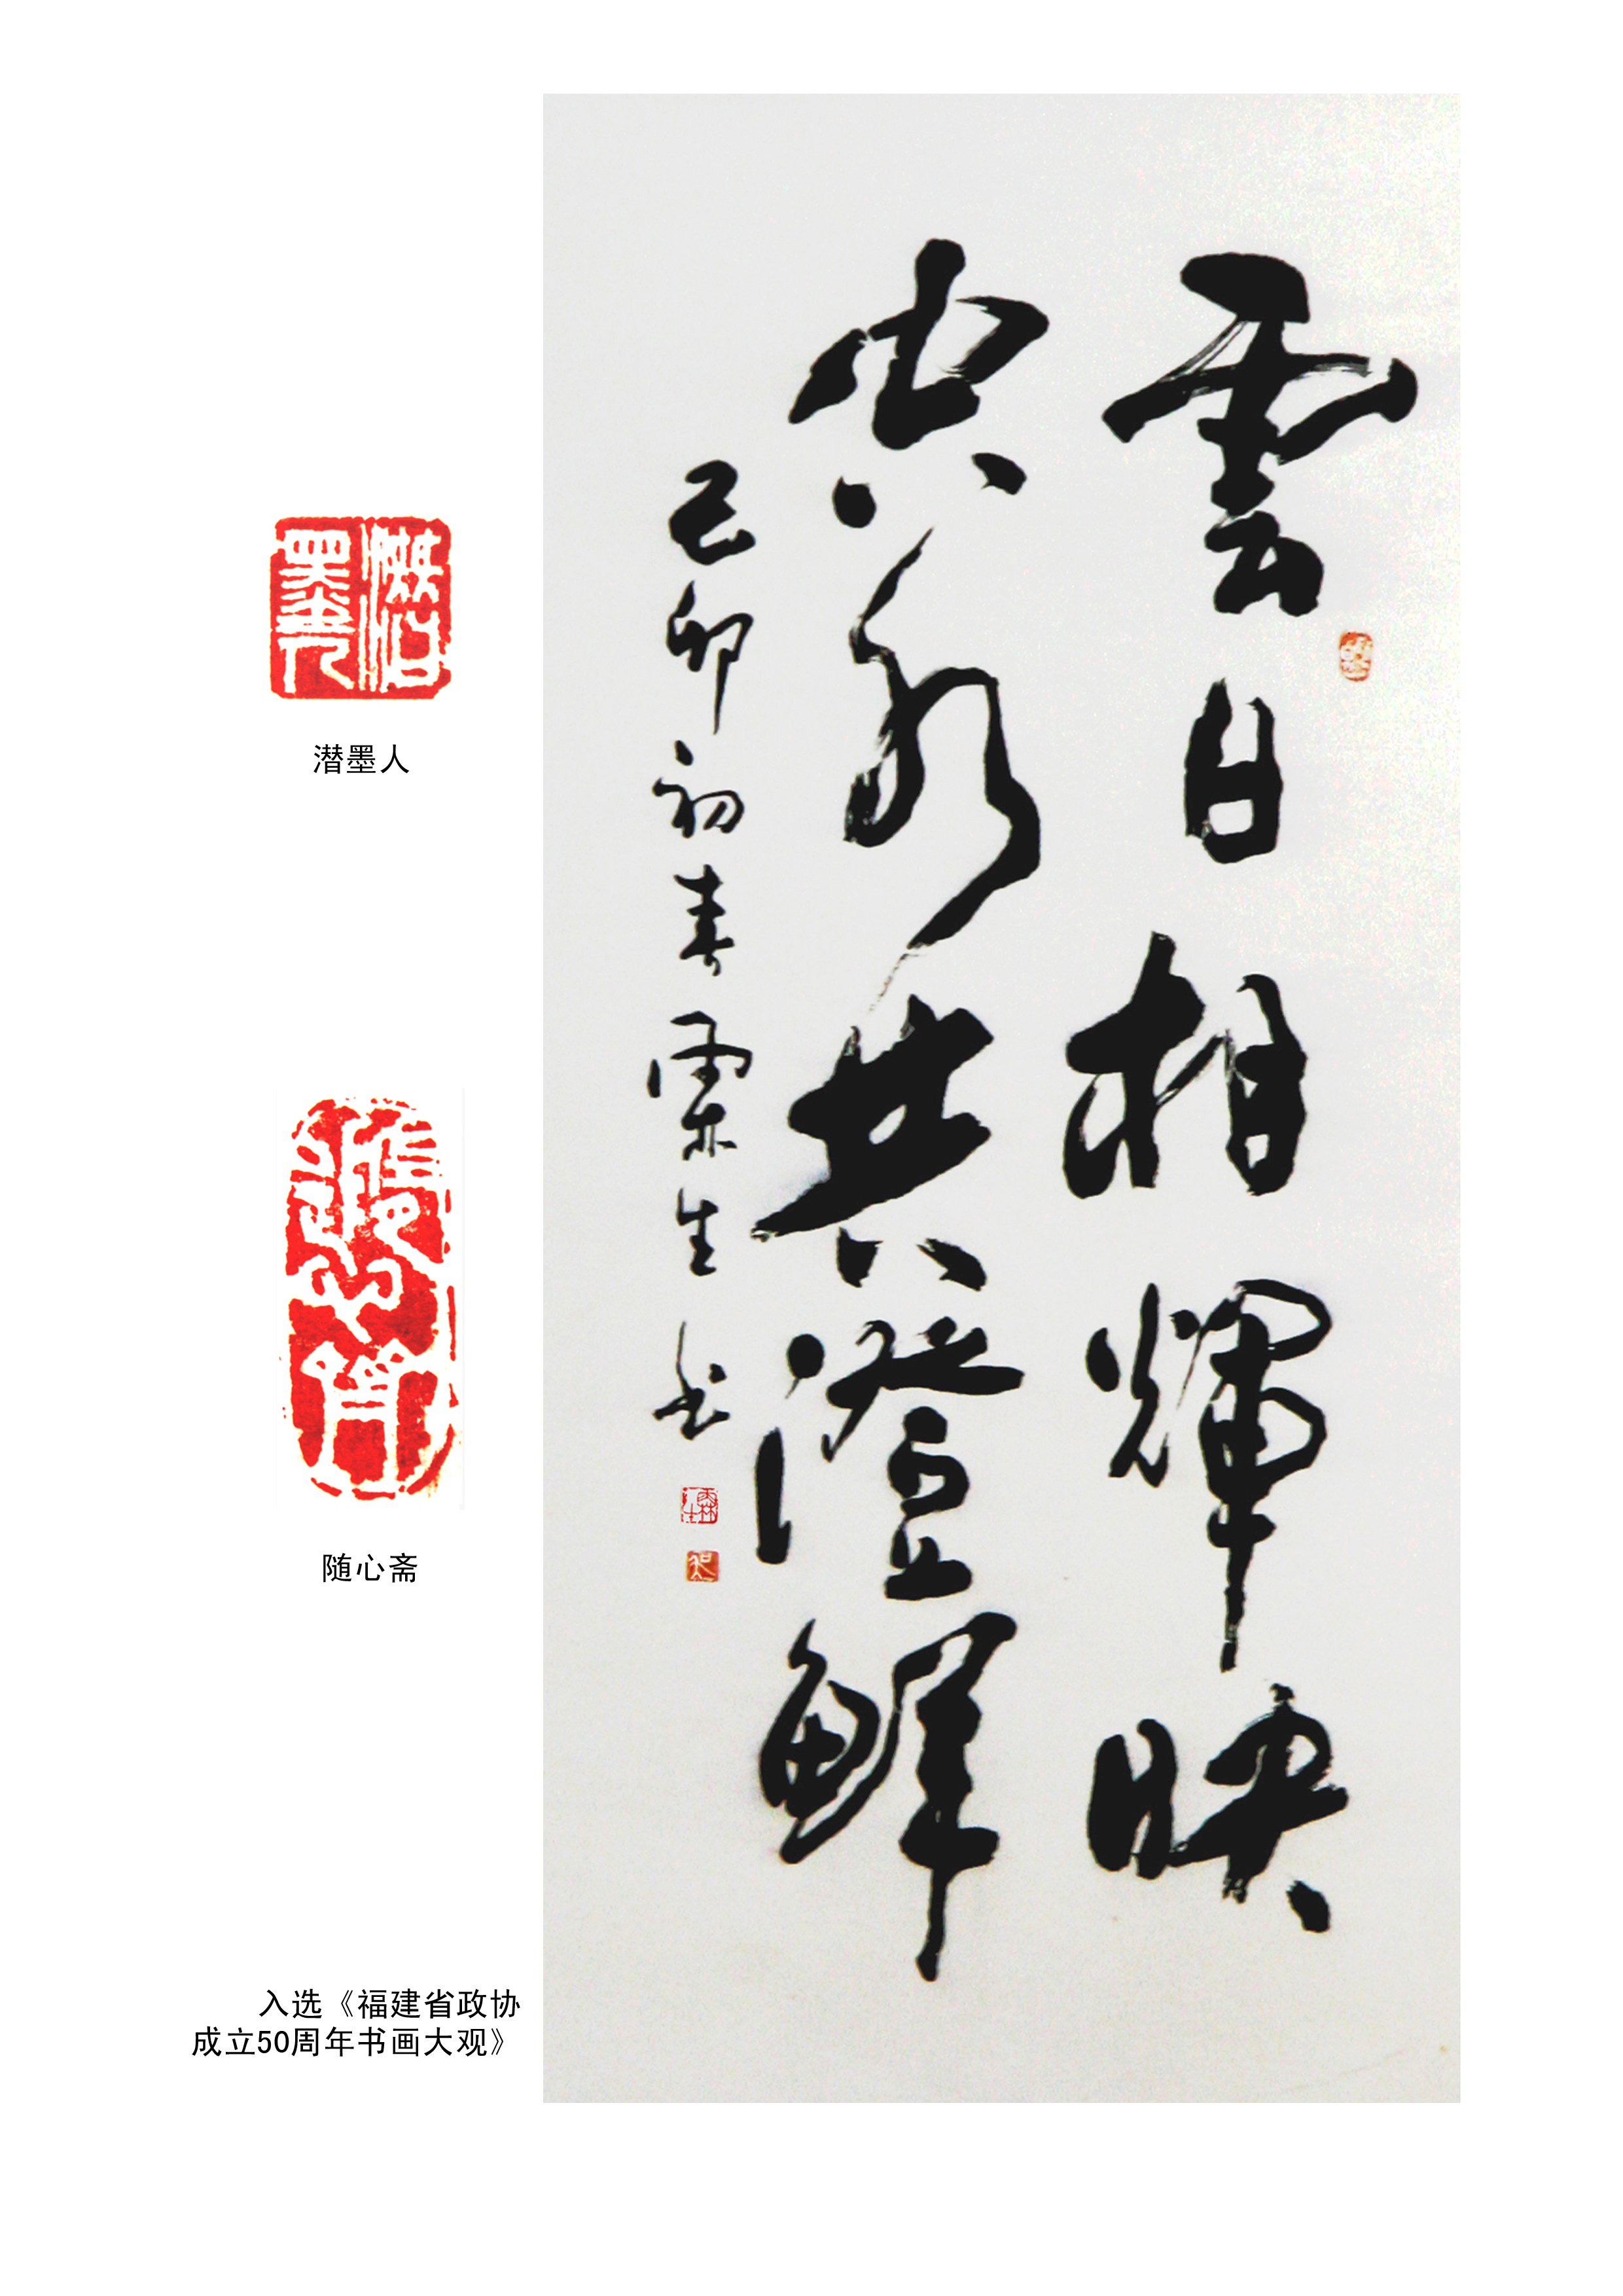 雲日相輝映
空水共澄鮮
己卯初春霖生书
潜墨人
随心斋
入选《福建省政协
成立50周年书画大观》